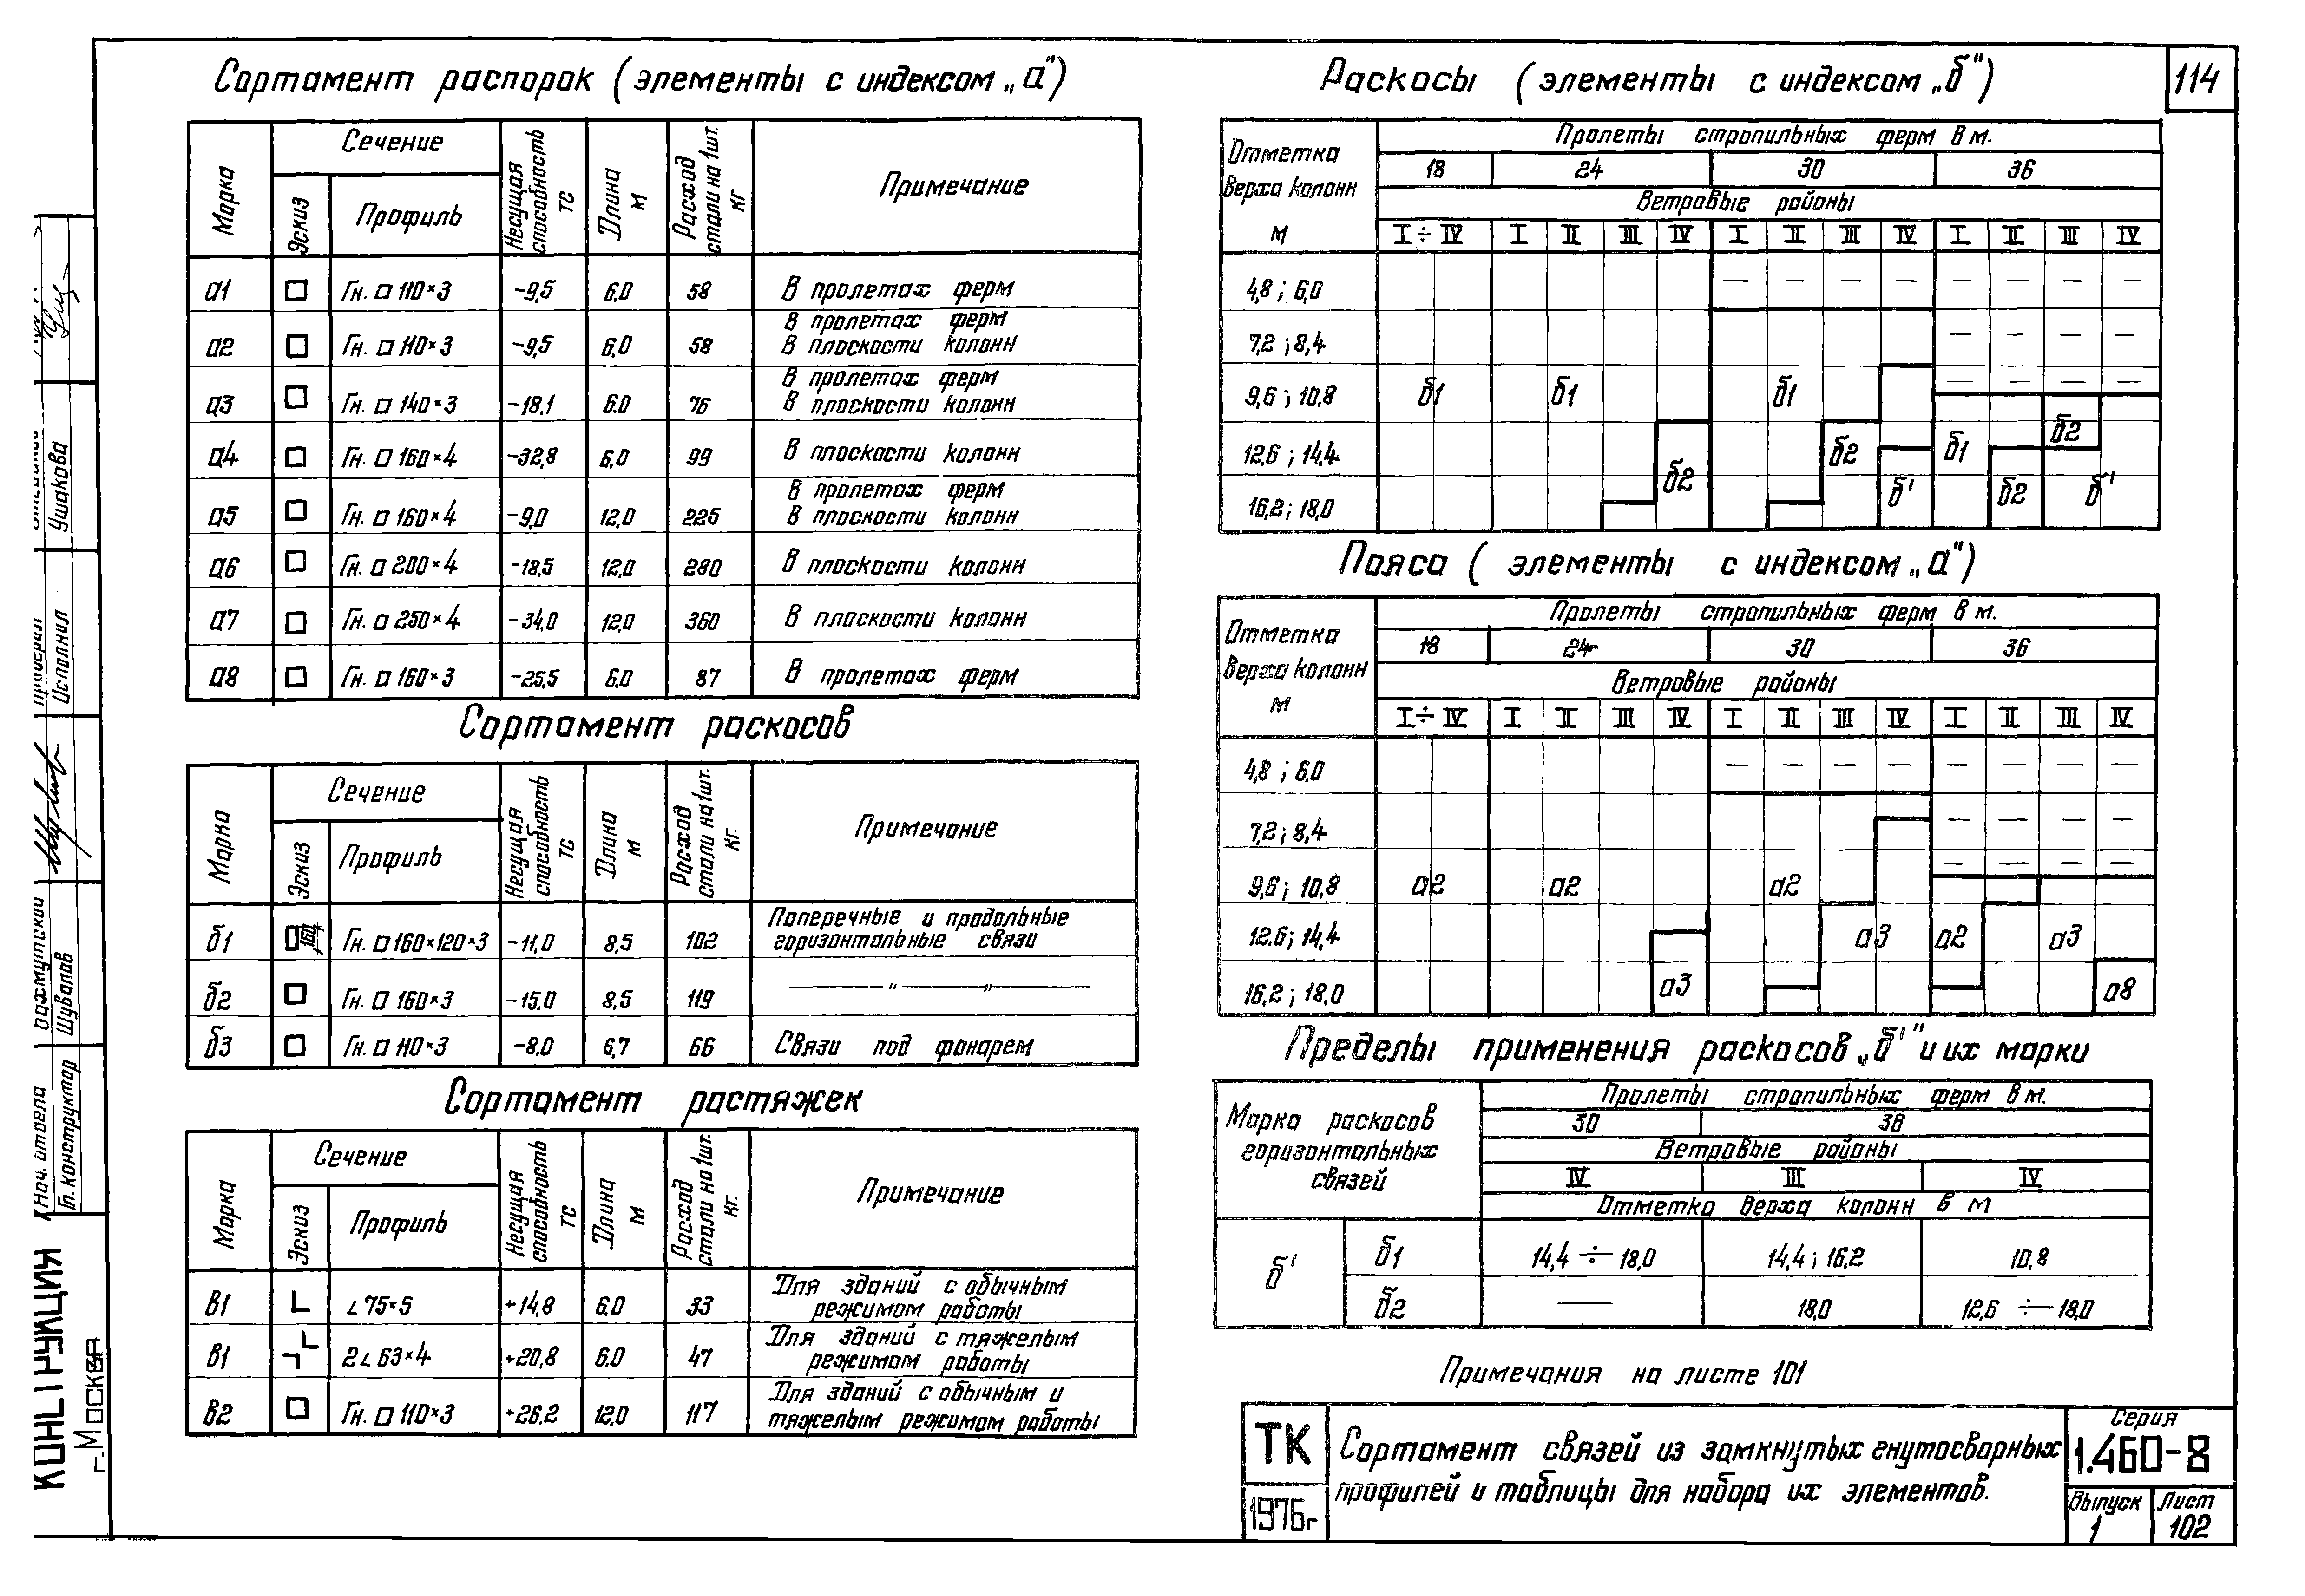 114
Сортамент распорок (элементы с индексом „а")
Марка Сечение Несущая способность тс Длина м Расход стали на 1шт. кг Примечание
Эскиз Профиль
а1 Гн. □ 110×3 -9,5 6.0 58 В пролетах ферм
а2 Гн. □ 110×3 -9,5 6.0 58 В пролетах ферм
В плоскости колонн
а3 Гн. □ 140×3 -18,1 6.0 76 В пролетах ферм
В плоскости колонн
а4 Гн. □ 160×4 -32,8 6.0 99 В плоскости колонн
а5 Гн. □ 160×4 -9,0 12,0 225 В пролетах ферм
В плоскости колонн
а6 Гн. □ 200×4 -18,5 12,0 280 В плоскости колонн
а7 Гн. □ 250×4 -34,0 12,0 360 В плоскости колонн
а8 Гн. □ 160×3 -25,5 6.0 87 В пролетах ферм
Сортамент раскосов
Марка Сечение Несущая способность тс Длина м Расход стали на 1шт. кг. Примечание
Эскиз Профиль
б1 160 Гн. □ 160×120×3 -11,0 8,5 102 Поперечные и продольные
горизонтальные связи
б2 Гн. □ 160×3 -15,0 8,5 119 — " — " —
б3 Гн. □ 110×3 -8,0 6,7 66 Связи под фонарем
Сортамент растяжек
Марка Сечение Несущая способность тс Длина м Расход стали на 1шт. кг. Примечание
Эскиз Профиль
в1 ∟75×5 +14,8 6.0 33 Для зданий с обычным
режимом работы
в1 2∟63×4 +20,8 6.0 47 Для зданий с тяжелым
режимом работы
в2 Гн. □ 110×3 +26,2 12,0 117 Для зданий с обычным и
тяжелым режимом работы
Раскосы (элементы с индексом „б")
Отметка верха колонн м
Пролеты стропильных ферм в м.
18 24 30 36
Ветровые районы
I÷IV I II III IV I II III IV I II III IV
4,8 ; 6,0 — — — — — — — —
7,2 ; 8,4 — — — —
9,6 ; 10,8 б1 б1 б1 — — — —
12,6 ; 14,4 б2 б2 б1 б2
16,2 ; 18,0 б' б2 б'
Пояса (элементы с индексом „а")
Отметка верха колонн м
Пролеты стропильных ферм в м.
18 24 30 36
Ветровые районы
I÷IV I II III IV I II III IV I II III IV
4,8 ; 6,0 — — — — — — — —
7,2 ; 8,4 — — — —
9,6 ; 10,8 а2 а2 а2 — — — —
12,6 ; 14,4 а3 а2 а3
16,2 ; 18,0 а3 а8
Пределы применения раскосов „б'" и их марки
Марка раскосов горизонтальных связей
Пролеты стропильных ферм в м.
30 36
Ветровые районы
IV III IV
Отметка верха колонн в м
б' б1 14,4 ÷ 18,0 14,4 ; 16,2 10,8
б2 — 18,0 12,6 ÷ 18,0
Примечания на листе 101
ТК
1976г
Сортамент связей из замкнутых гнутосварных
профилей и таблицы для набора их элементов.
Серия
1.460-8
Выпуск 1
Лист 102
Ушакова
Исполнил
Шувалов
Нач. отдела
Гл. конструктор
г. Москва